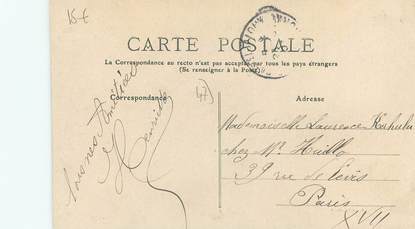 15 €
CARTE POSTALE
La Correspondance au recto n'est pas acceptée par tous les pays étrangers
(Se renseigner à la Poste)
Correspondance
Adresse
47
Bonnes Amitiés
Mademoiselle Laurence
chez Mr
39 rue de Lévis
Paris
XVII